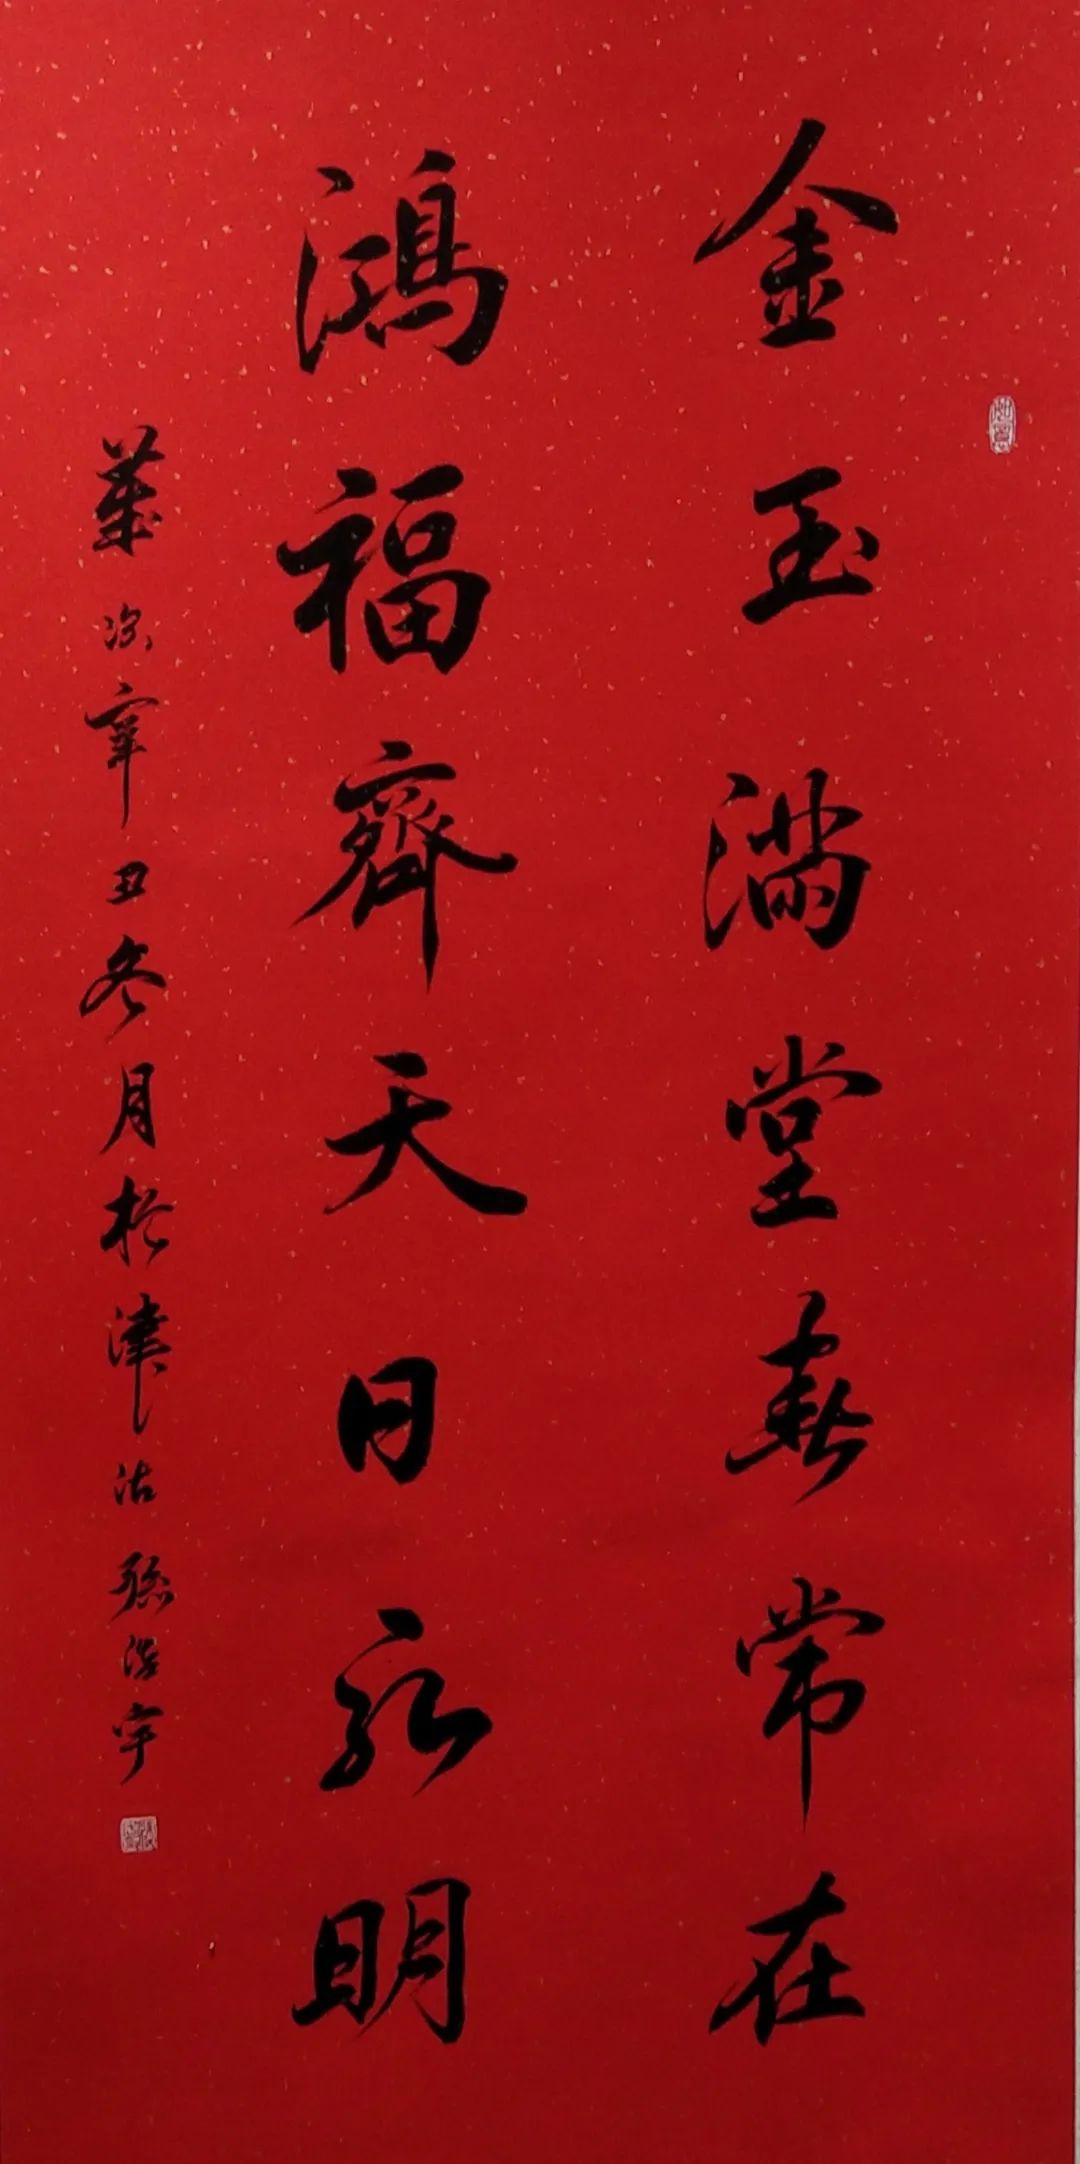 金玉滿堂春常在
鴻福齊天日永明
歲次辛丑冬月於津沽孫浩宇